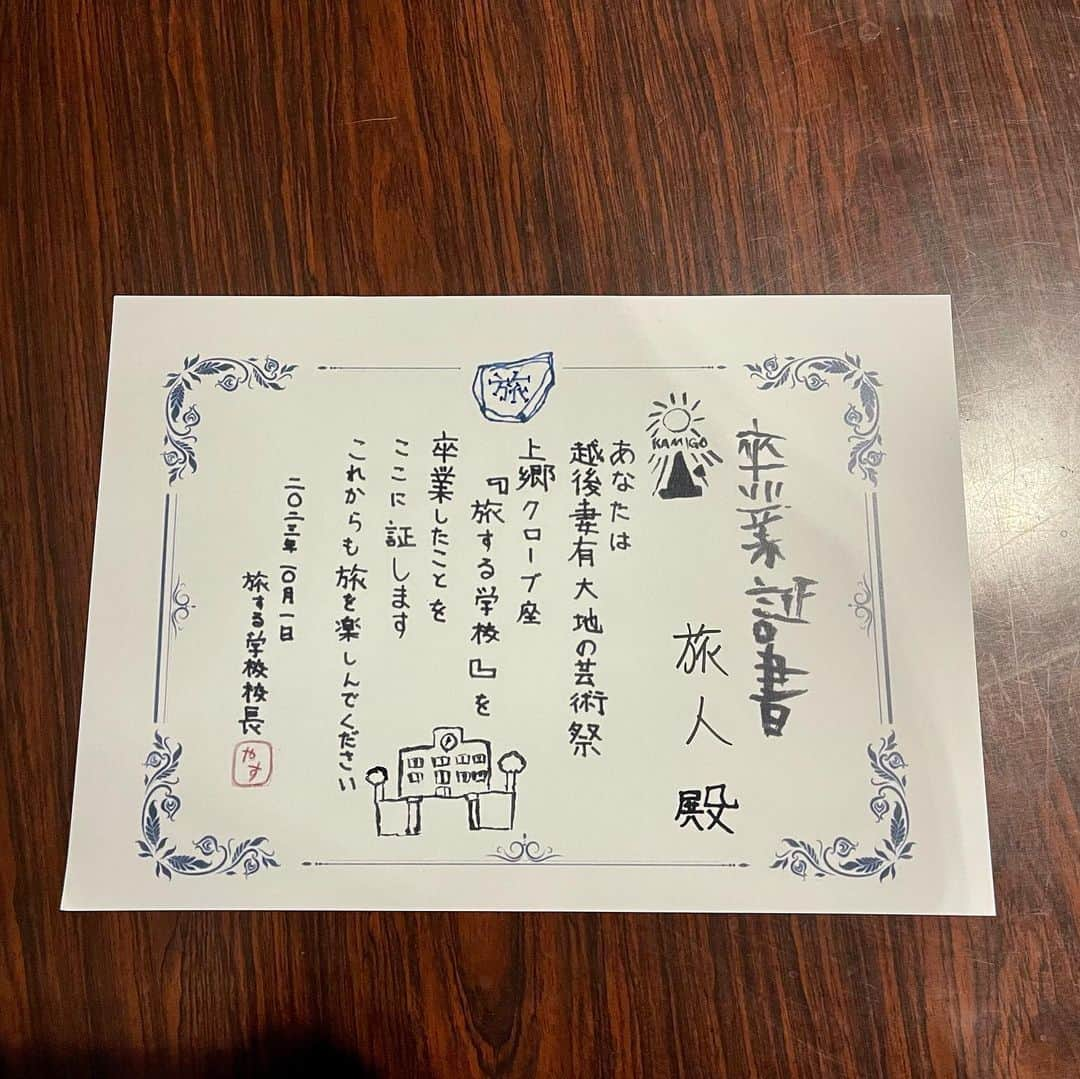 卒業証書
旅人 殿
KAMIGO
旅
あなたは
越後妻有大地の芸術祭
上郷クローブ座
『旅する学校』を
卒業したことを
ここに証します
これからも旅を楽しんでください
二〇二三年一〇月一日
旅する学校校長
やす